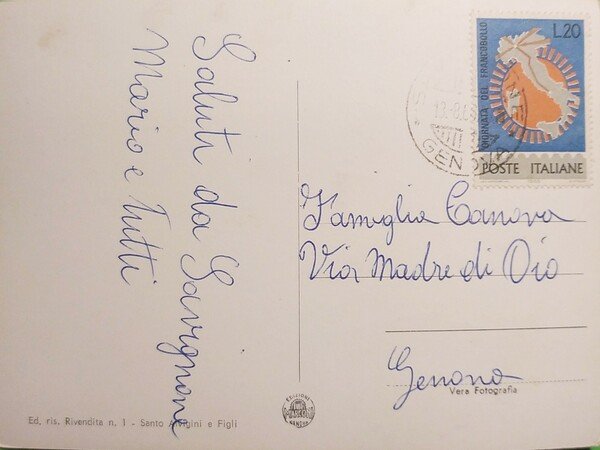 Saluti da Savignone
Mario e Tutti
L.20
GIORNATA DEL FRANCOBOLLO
POSTE ITALIANE
13-8.66
GENOVA
Famiglia Canova
Via Madre di Dio
Genova
Vera Fotografia
Ed. ris. Rivendita n. 1 - Santo e Figli